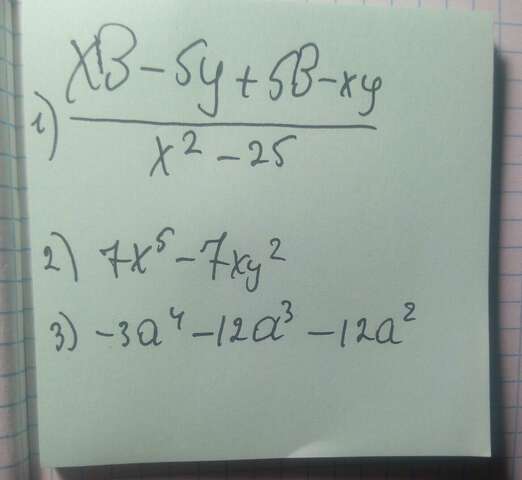 1) xB - 5y + 5B - xy
x² - 25
2) 7x⁵ - 7xy²
3) -3a⁴ - 12a³ - 12a²